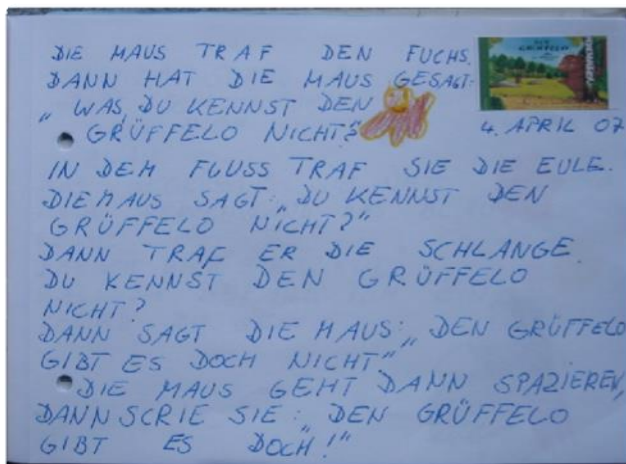 DIE MAUS TRAF DEN FUCHS.
DANN HAT DIE MAUS GESAGT:
„WAS, DU KENNST DEN
GRÜFFELO NICHT?"
4. APRIL 07
IN DEM FLUSS TRAF SIE DIE EULE.
DIE MAUS SAGT: „DU KENNST DEN
GRÜFFELO NICHT?"
DANN TRAF ER DIE SCHLANGE.
DU KENNST DEN GRÜFFELO
NICHT?
DANN SAGT DIE MAUS: „DEN GRÜFFELO
GIBT ES DOCH NICHT"
DIE MAUS GEHT DANN SPAZIEREN,
DANN SCRIE SIE: „DEN GRÜFFELO
GIBT ES DOCH!"